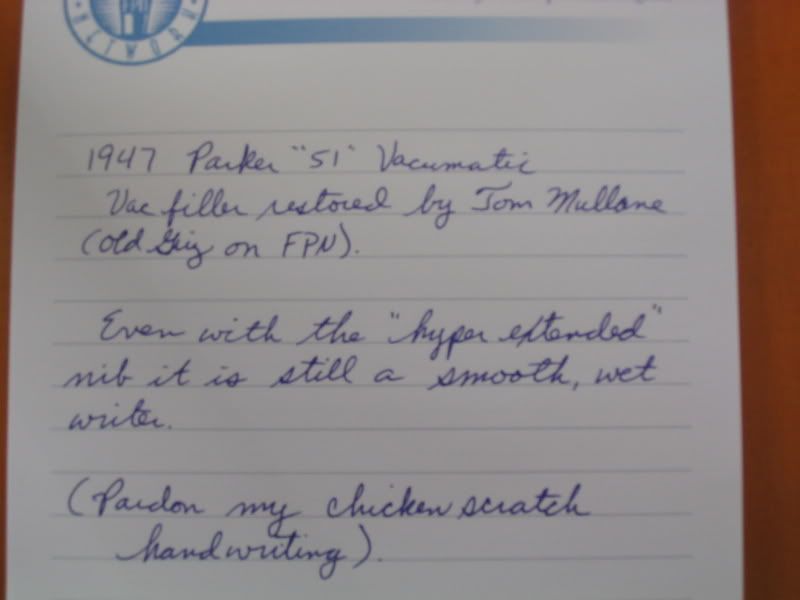 NETWORK
1947 Parker "51" Vacumatic
Vac filler restored by Tom Mullane
(Old Griz on FPN).
Even with the "hyper extended"
nib it is still a smooth, wet
writer.
(Pardon my chicken scratch
handwriting).